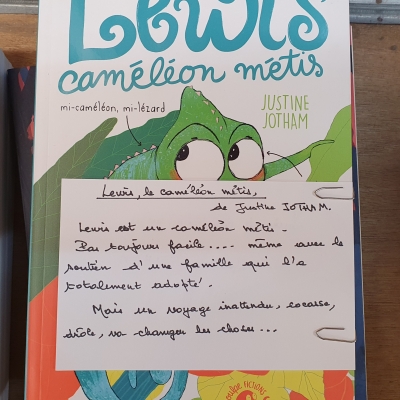 Lewis
caméléon métis
mi-caméléon, mi-lézard
JUSTINE
JOTHAM
Lewis, le caméléon métis,
de Justine JOTHAM.
Lewis est un caméléon métis.
Pas toujours facile.... même avec le
soutien d'une famille qui l'a
totalement adopté.
Mais un voyage inattendu, cocasse,
drôle, va changer les choses...
FICTIONS